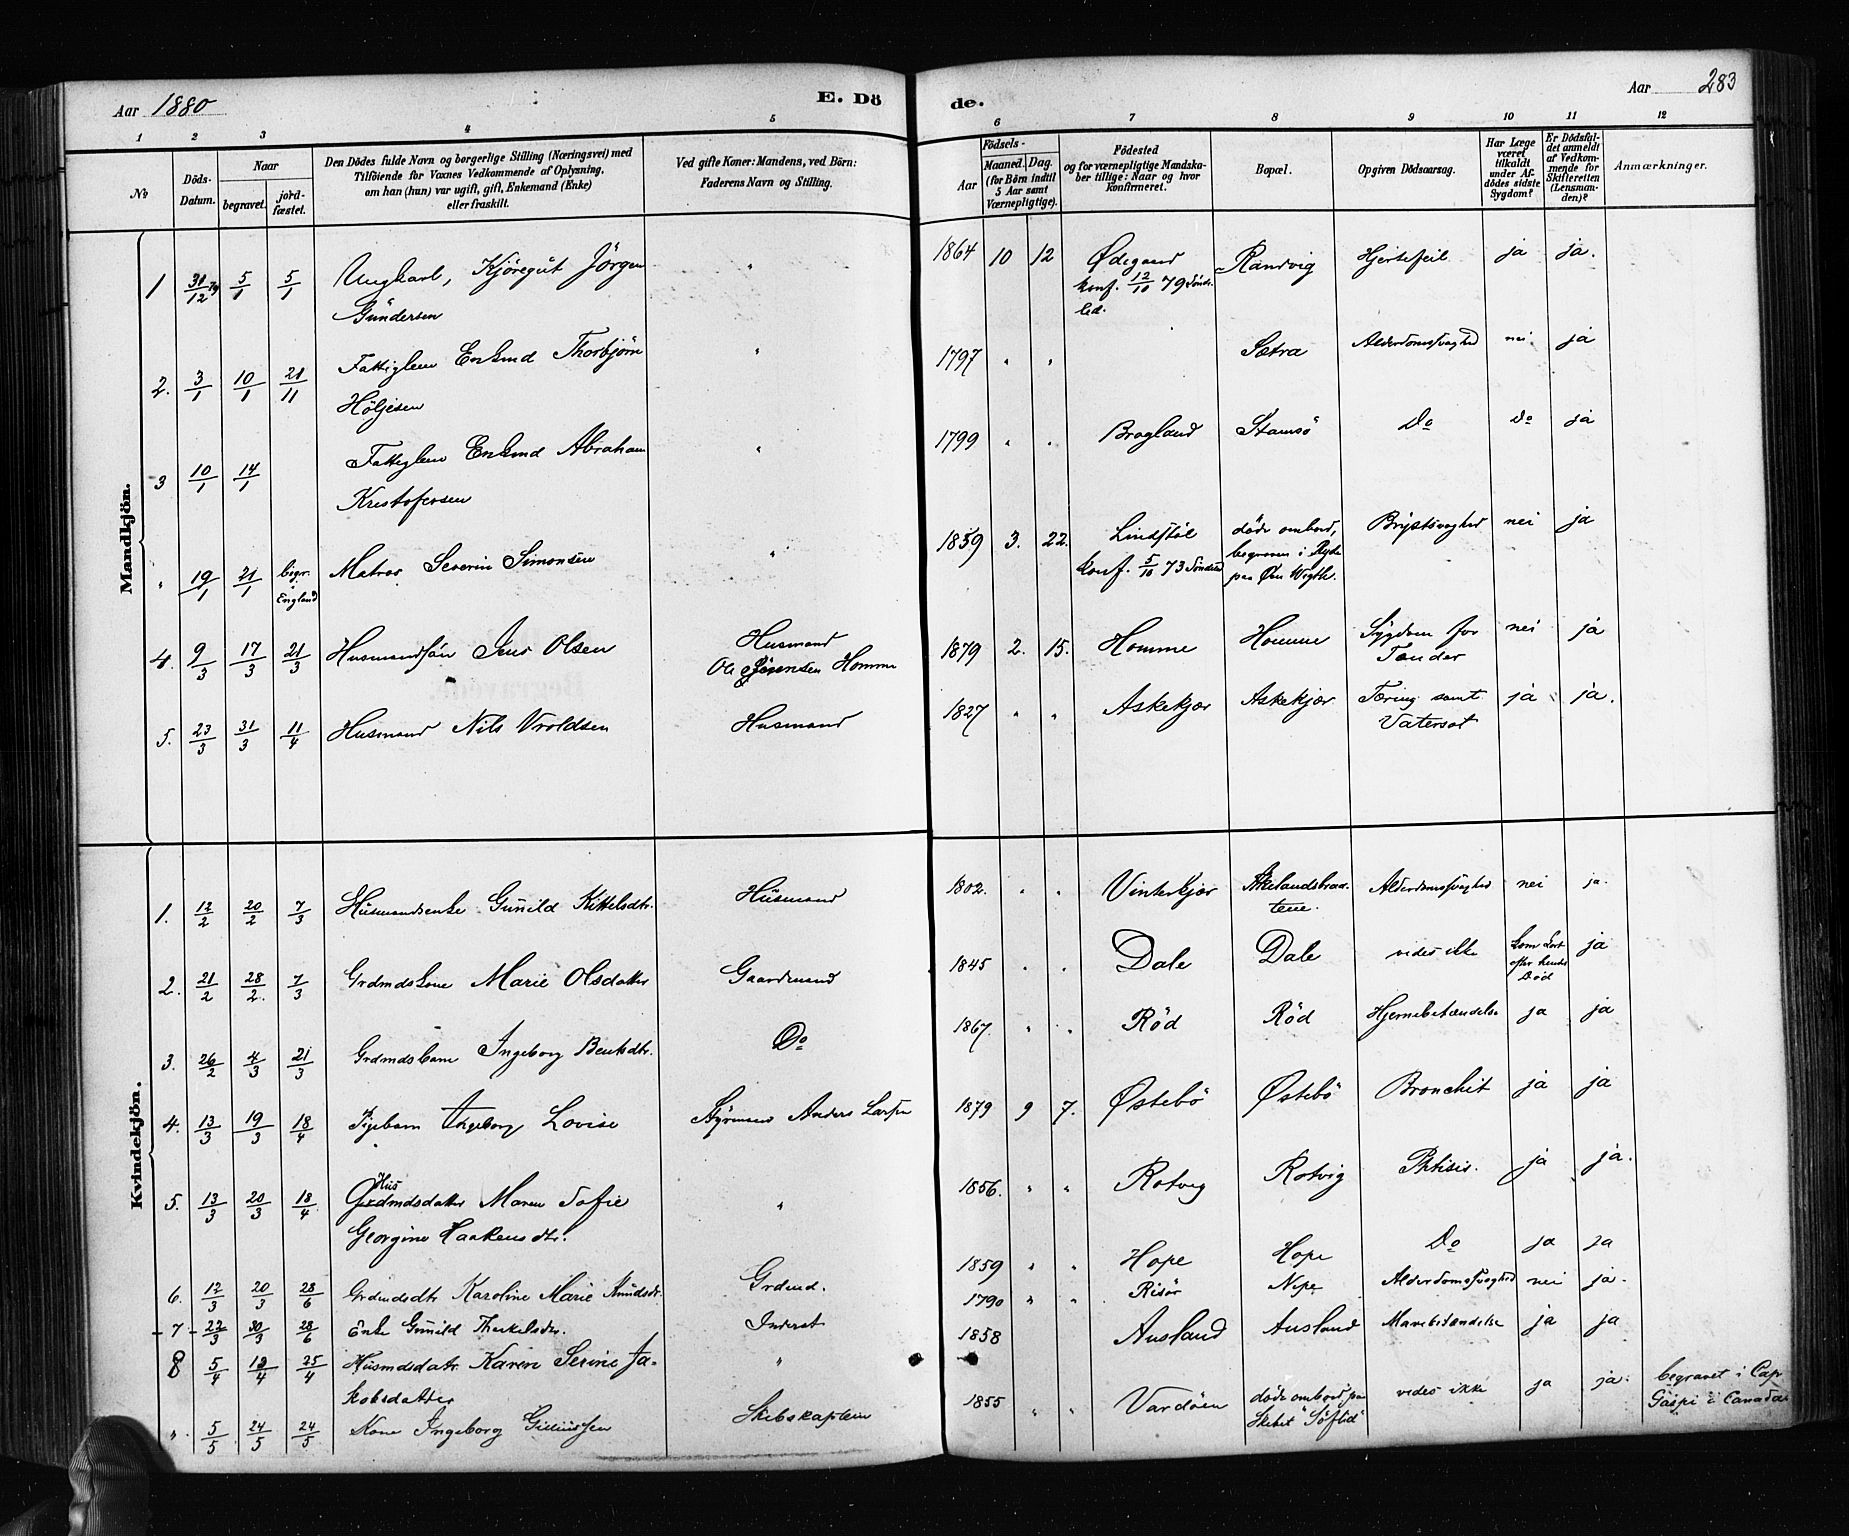 Aar 1880
E. Dö
de.
Aar 283
1 2 3 4 5 6 7 8 9 10 11 12
No
Döds-Datum.
Naar
begravet.
jord-fæstet.
Den Dödes fulde Navn og borgerlige Stilling (Næringsvei) med
Tilföiende for Voxnes Vedkommende af Oplysning,
om han (hun) var ugift, gift, Enkemand (Enke)
eller fraskilt.
Ved gifte Koner: Mandens, ved Börn:
Faderens Navn og Stilling.
Födsels-
Aar
Maaned. Dag.
(for Börn indtil
5 Aar samt
Værnepligtige).
Födested
og for værnepligtige Mandska-
ber tillige: Naar og hvor
Konfirmeret.
Bopæl.
Opgiven Dödsaarsag.
Har Læge
været
tilkaldt
under Af-
dödes sidste
Sygdom?
Er Dödsfal-
det anmeldt
af Vedkom-
mende for
Skifteretten
(Lensman-
den)?
Anmærkninger.
Mandkjön.
1 31/12 79 5/1 5/1 Ungkarl, Kjöregut Jörgen " 1864 10 12 Ødegaard Randvig Hjertefeil ja ja.
Gundersen konf. 12/10 79 Sönde-
led.
2. 3/1 10/1 21/11 Fattiglem Enkmd Thorbjörn " 1797 " " Sætra Alderdomssvaghed nei ja
Höljesen
3 10/1 14/1 Fattiglem Enkmd Abraham " 1799 " " Brogland Stamsö Do Do ja
Kristofersen
" 19/1 21/1 begr. i England Matros Severin Simonsen " 1859 3. 22. Lindstöl döde ombord, Brystsvaghed nei ja
konf. 5/10 73 Sönde begraven i Ryde
paa Øen Wigth.
4. 9/3 17/3 21/3 Husmandssön Jens Olsen Husmand 1879 2. 15. Homme Homme Sygdom for nei ja
Ole Jörensen Homme Tænder
5. 23/3 31/3 11/4 Husmand Nils Vroldsen Husmand 1827 " " Askekjær Askekjær Tæring samt ja ja.
Vatersot
Kvindekjön.
1. 12/2 20/2 7/3 Husmandsenke Gunild Kittelsdtr. Husmand 1802. " " Vinterkjær Akelandsbraa- Alderdomssvaghed nei ja.
tene.
2. 21/2 28/2. 7/3 Grdmdskone Marie Olsdatter Gaardmand 1845 " " Dale Dale vides ikke kom kort ja
efter hendes
Död
3. 26/2 4/3 21/3 Grdmdsbarn Ingeborg Bentsdtr. Do 1867. " " Röd Röd Hjernebetændelse ja ja
4. 13/3 19/3 18/4 Pigebarn Ingeborg Lovise Styrmand Anders Larsen 1879 9 7. Østebö Østebö Bronchit ja ja
5. 13/3 20/3 18/4 Husmdsdatter Maren Sofie " 1856. " " Rotvig Rotvig Phtisis. ja ja.
Georgine Haakensdtr.
6. 12/3 20/3 28/6 Grdmdsdtr Karoline Marie Knudsdtr. Grdmd. 1859 " " Hope Hope Do ja ja
7 22/3 30/3 28/6 Enke Gunild Therkelsdtr. Inderst 1790 " " Risör Nepe Alderdomssvaghed nei ja.
8 5/4 12/4 25/4 Husmdsdatr. Karen Serine Ja- " 1858 Ausland Ausland Mavebetændelse ja ja
kobsdatter
" 5/5 24/5 24/5 Kone Ingeborg Skibskaptein 1855 " " Vardöen döde ombord paa vides ikke ja ja. begravet i Cap
Skibet "Söflid" Gaspé i Canada